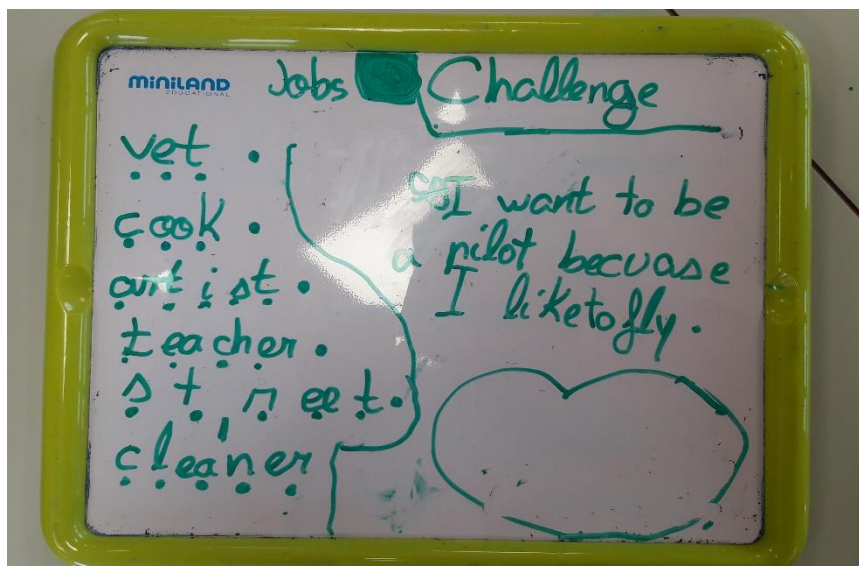 miniLAND
EDUCATIONAL
Jobs Challenge
vet .
cook .
artist .
teacher .
street .
cleaner
I want to be
a pilot becuase
I like to fly .